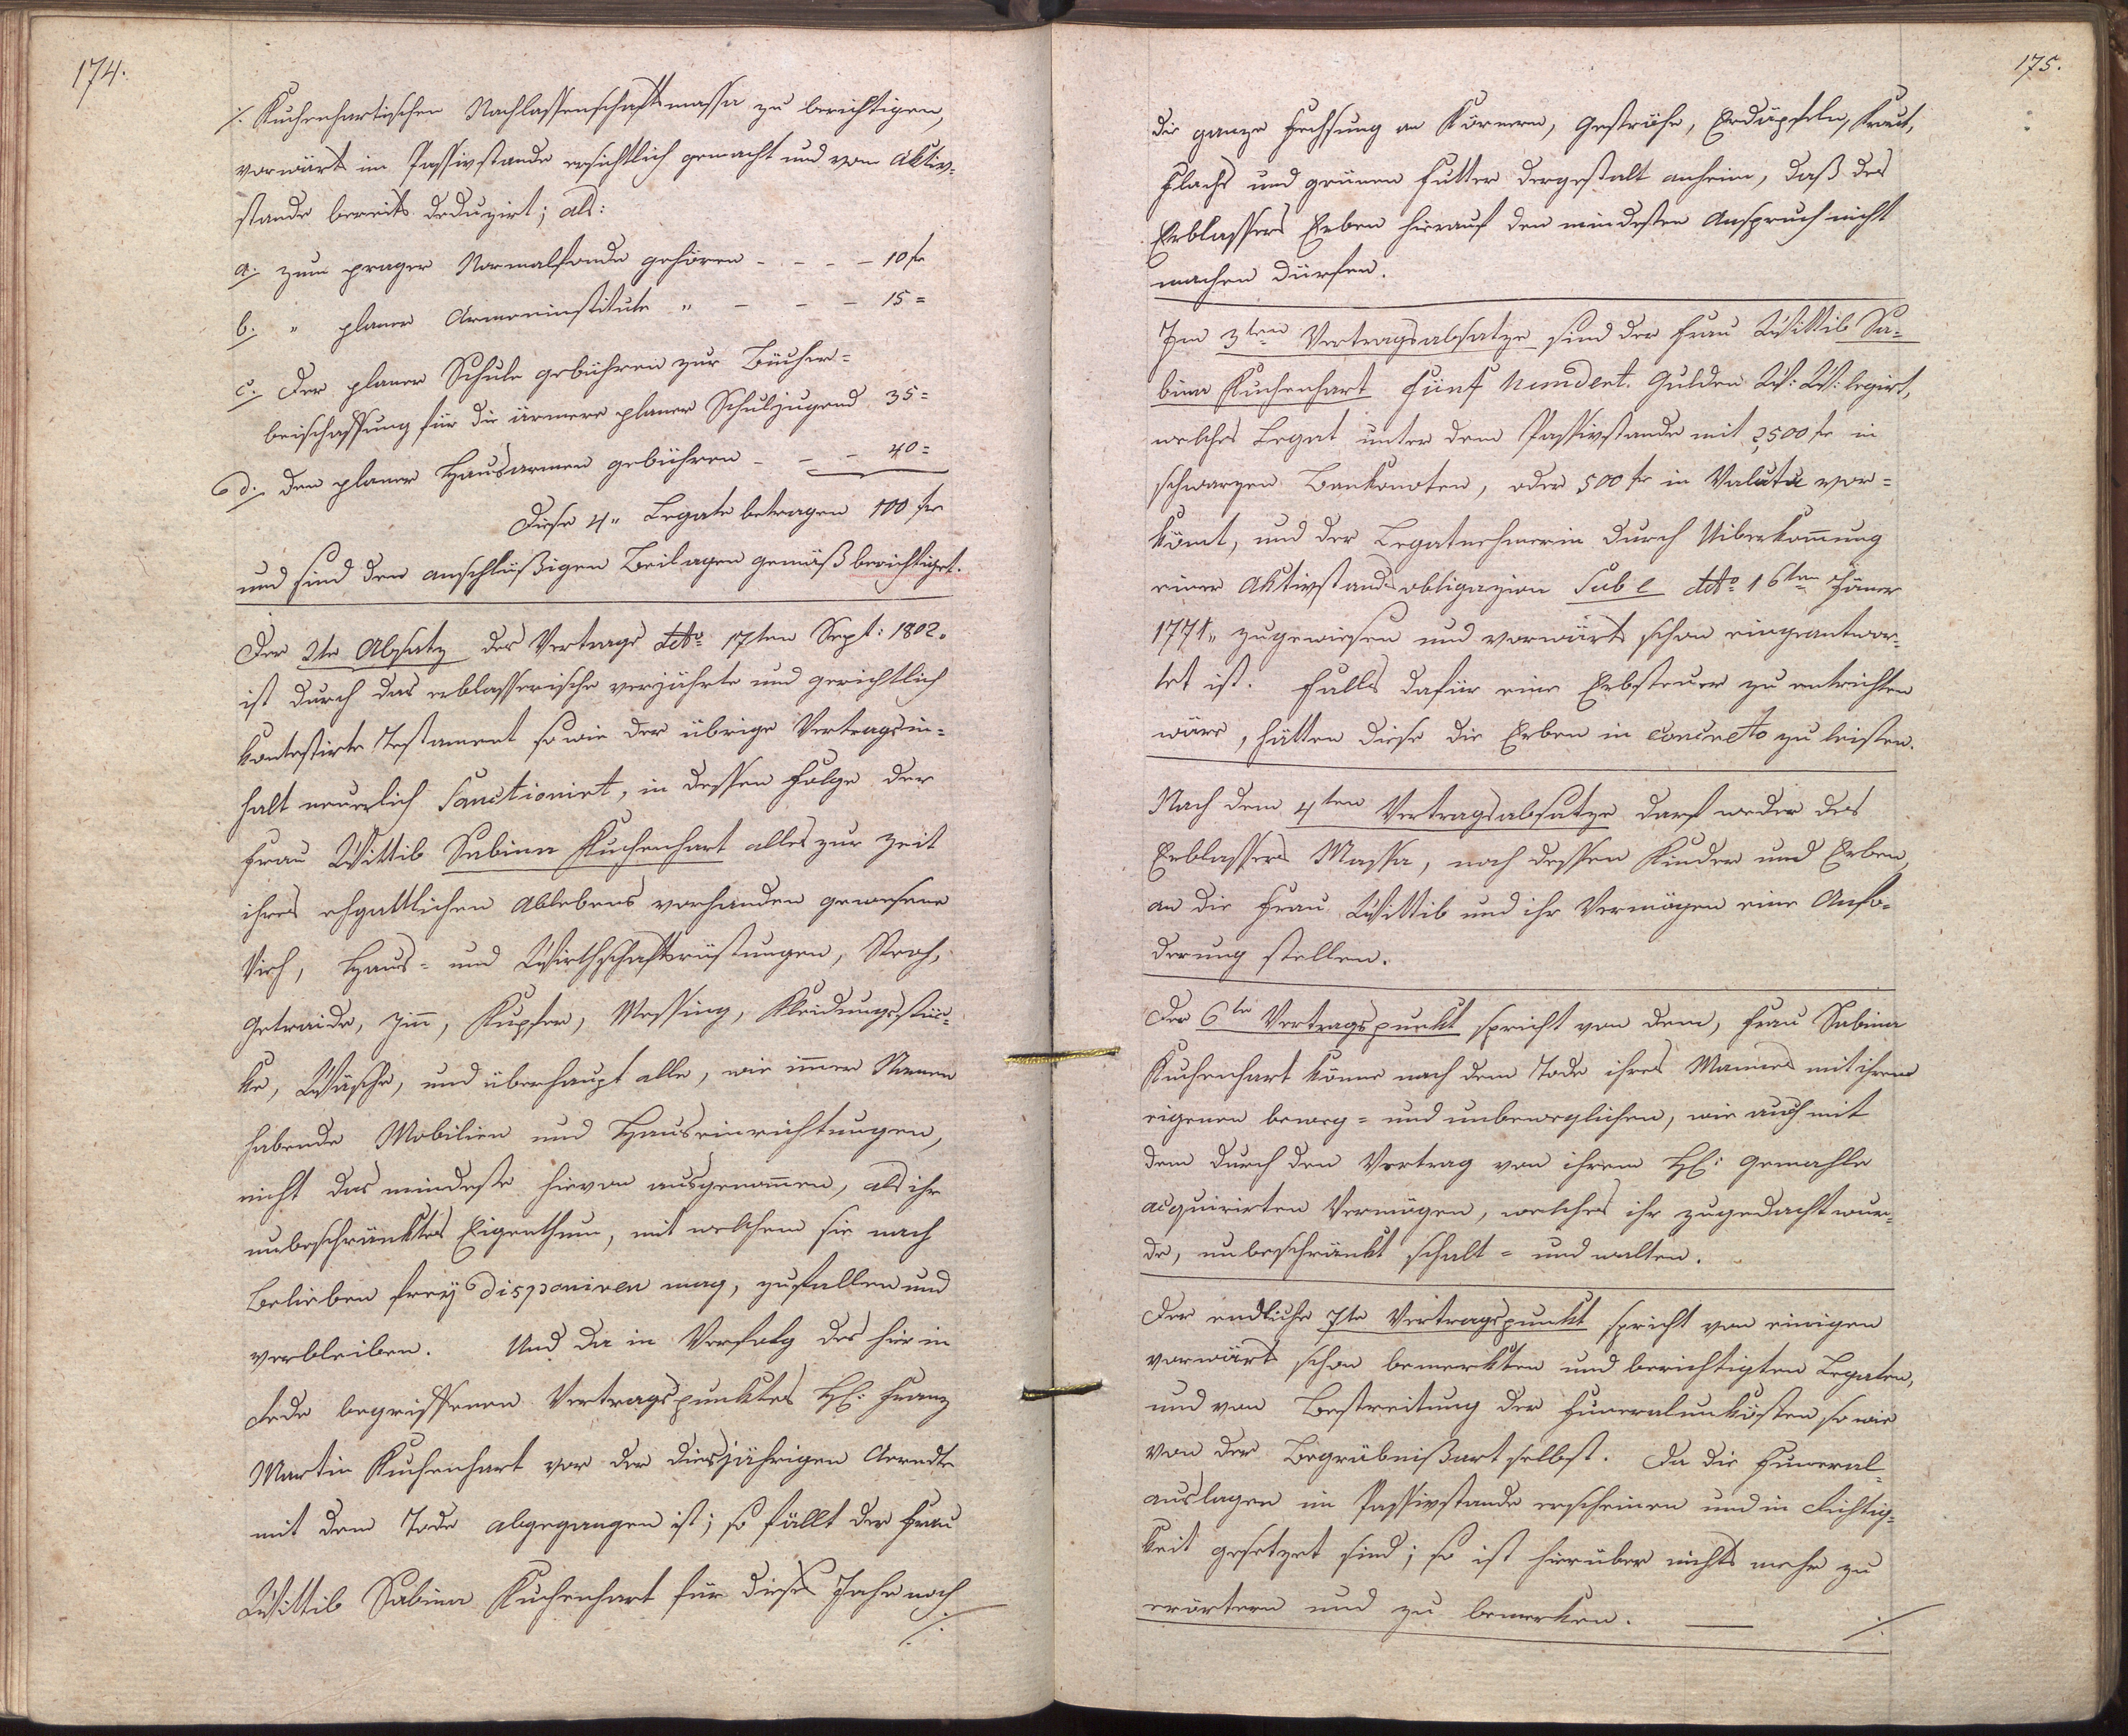 174.
./. Kuchenhartischen Nachlassenschaftsmassa zu berichtigen,
vorwärts im Passivstande ersichtlich gemacht und vom Aktiv-
stande bereits deduzirt; als:
a. zum prager Normalfonde gehören - - - - 10 fr
b. " planer Armeninstitute " - - - 15 =
c. Der planer Schule gebühren zur Bücher=
beischaffung für die ärmere planer Schuljugend 35 =
d. den planer Hausarmen gebühren - - - 40 =
Diese 4" Legate betragen 100 fr
und sind den anschlüßigen Beilagen gemäß berichtiget.
Der 2te Absatz des Vertrags ddto 17ten Sept: 1802.
ist durch das erblasserische verjährte und gerichtlich
kontestirte Testament so wie der übrige Vertragsin=
halt neuerlich Sanctionirt, in dessen Folge der
Frau Wittib Sabina Kuchenhart alles zur Zeit
ihres ehgattlichen Ablebens vorhanden gewesene
Vieh, Haus= und Wirthschaftsrüstungen, Stroh,
Getraide, Zinn, Kupfer, Messing, Kleidungsstü=
ke, Wäsche, und überhaupt alle, wie immer Namen
habende Mobilien und Hauseinrichtungen,
nicht das mindeste hievon ausgenommen, als ihr
unbeschränktes Eigenthum, mit welchem sie nach
Belieben freÿ disponiren mag, zufallen und
verbleiben. Und da in Verfolg des hier in
Rede begriffenen Vertragspunktes H: Franz
Martin Kuchenhart vor der diesjährigen Aerndte
mit dem Tode abgegangen ist; so fällt der Frau
Wittib Sabina Kuchenhart für dieses Jahr noch
./.
175.
die ganze Fechsung an Körnern, Geströhe, Erdäpfeln, Kraut,
Flachs und grünen Futter dergestalt anheim, daß des
Erblassers Erben hierauf den mindesten Anspruch nicht
machen dürfen.
Im 3ten Vertragsabsatze sind der Frau Wittib Sa=
bina Kuchenhart Fünf Hundert Gulden W: W: legirt,
welches Legat unter dem Passivstande mit 2,500 fr in
schwarzen Bankonoten, oder 500 fr in Valuta vor=
kömt, und der Legatnehmerin durch Uiberkommung
einer Aktivstandsobligazion Sub l ddto 16ten Jäner
1771" zugewiesen und vorwärts schon eingeantwor-
tet ist. Falls dafür eine Erbsteuer zu entrichten
wäre, hätten diese die Erben in concreto zu leisten.
Nach dem 4ten Vertragsabsatze darf weder des
Erblassers Massa, noch dessen Kinder und Erben,
an die Frau Wittib und ihr Vermögen eine Anfo-
derung stellen.
Der 6te Vertragspunkt spricht von dem, Frau Sabina
Kuchenhart könne nach dem Tode ihres Mannes mit ihrem
eigenen beweg= und unbeweglichen, wie auch mit
dem durch den Vertrag von ihrem H: Gemahle
acquirirten Vermögen, welches ihr zugedacht wur-
de, unbeschränkt schalt= und walten.
Der endliche 7te Vertragspunkt spricht von einigen
vorwärts schon bemerkten und berichtigten Legaten,
und von Bestreitung der Funeralunkösten so wie
von der Begräbnißart selbst. Da die Funeral=
auslagen im Passivstande erscheinen und in Richtig=
keit gesetzet sind; so ist hierüber nichts mehr zu
erörtern und zu bemerken. —— ./.